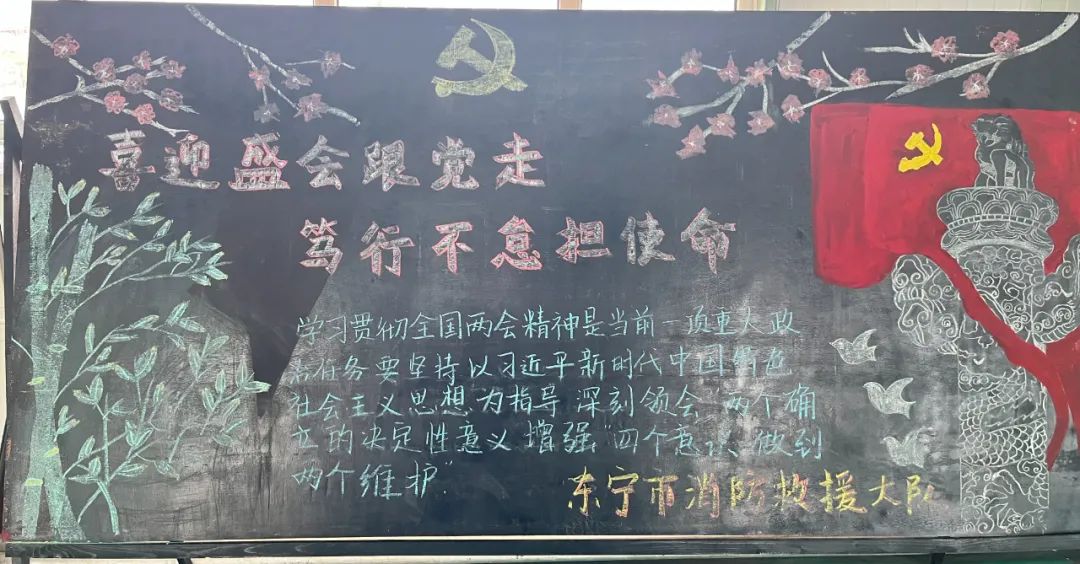 喜迎盛会跟党走
笃行不怠担使命
学习贯彻全国两会精神是当前一项重大政
治任务要坚持以习近平新时代中国特色
社会主义思想为指导深刻领会"两个确
立"的决定性意义增强"四个意识、做到
两个维护"
东宁市消防救援大队